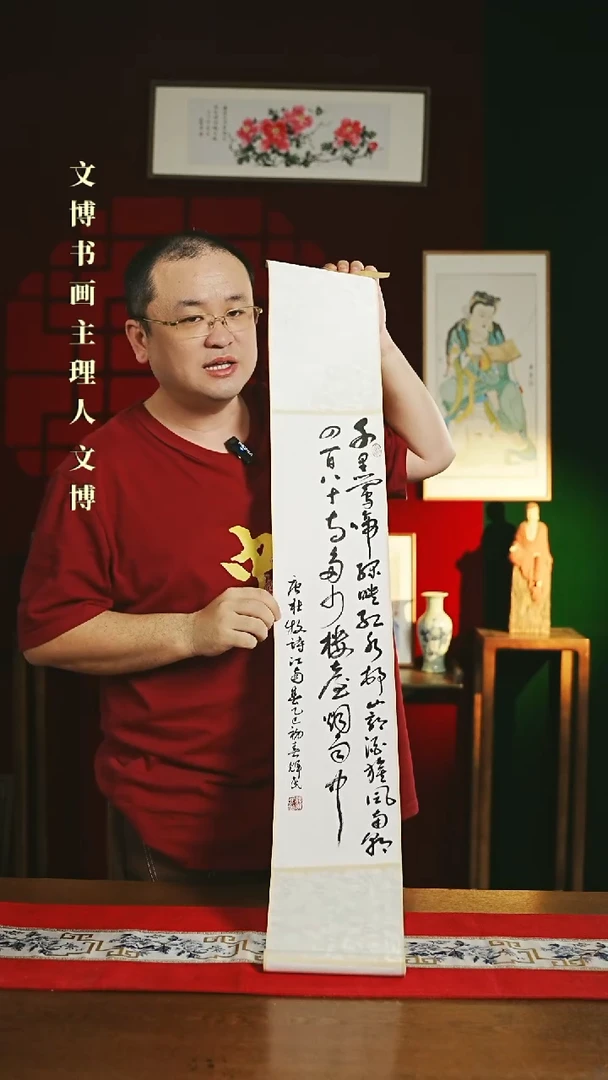 文博书画主理人文博
千里鶯啼綠映紅水村山郭酒旗風南朝
四百八十寺多少樓臺烟雨中
唐杜牧詩江南春乙巳初春輝